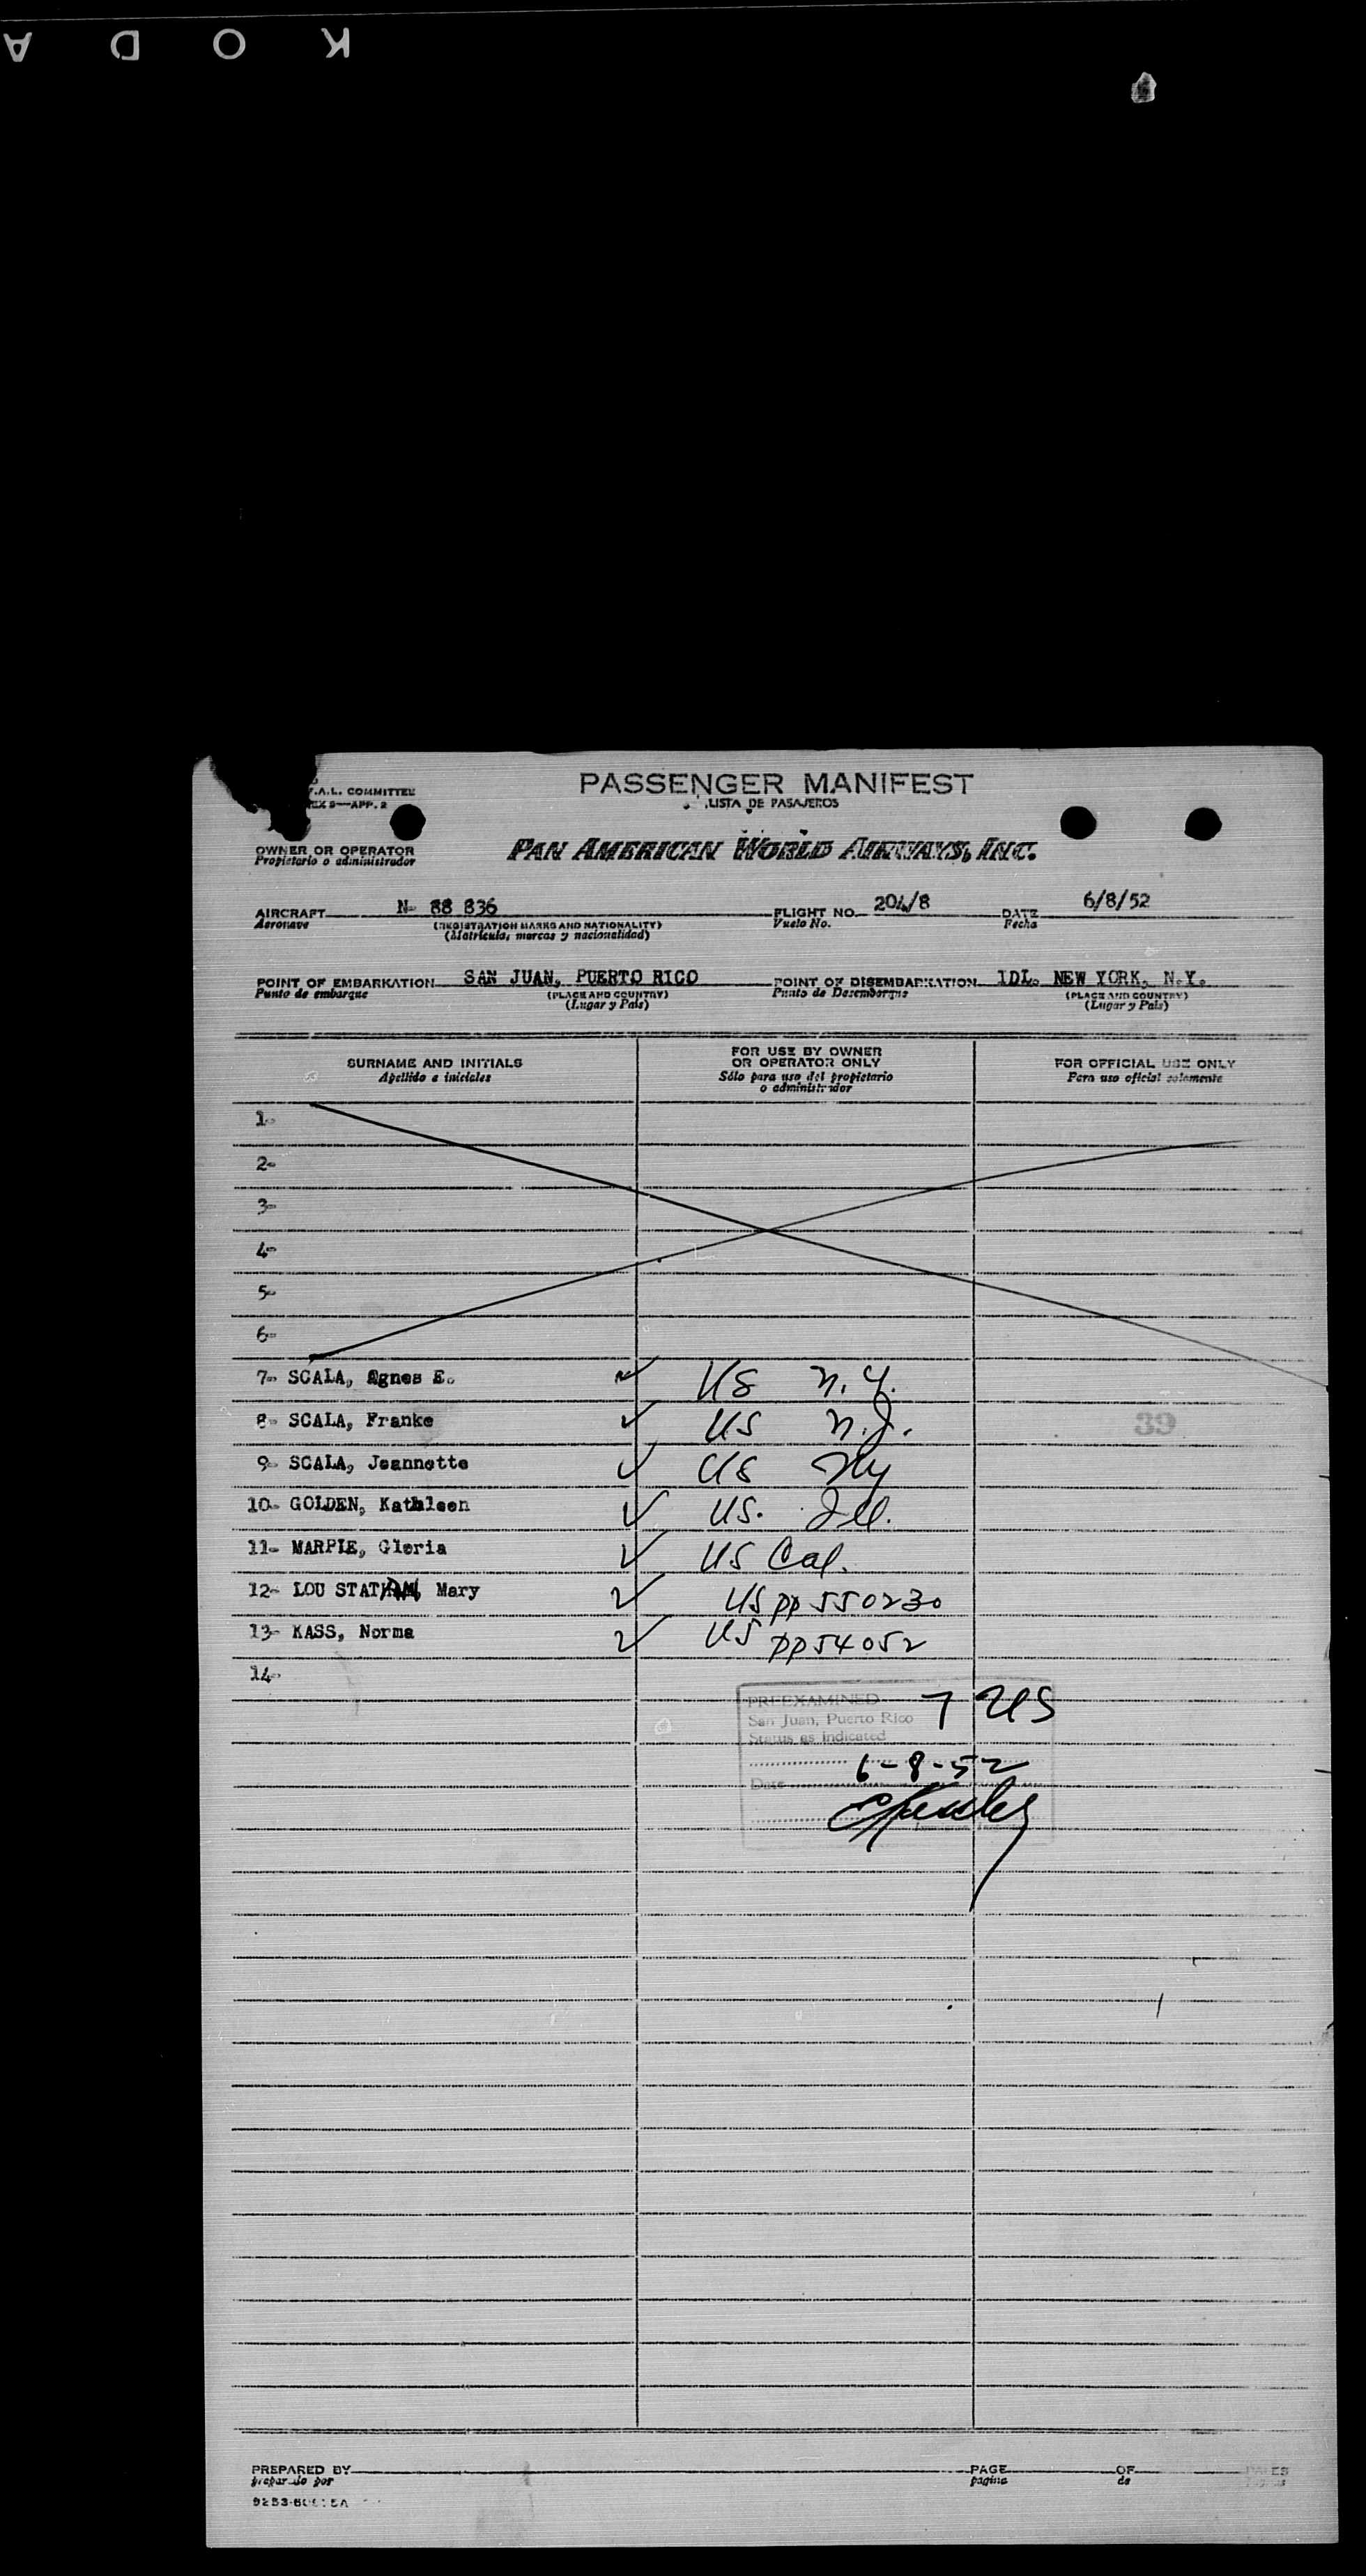 K O D A
F.A.L. COMMITTEE
PASSENGER MANIFEST
LISTA DE PASAJEROS
OWNER OR OPERATOR
Propietario o administrador
PAN AMERICAN WORLD AIRWAYS, INC.
AIRCRAFT N- 88 836 FLIGHT NO. 204/8 DATE 6/8/52
Aeronave (REGISTRATION MARKS AND NATIONALITY) Vuelo No. Fecha
(Matrícula, marcas y nacionalidad)
POINT OF EMBARKATION SAN JUAN, PUERTO RICO POINT OF DISEMBARKATION IDL. NEW YORK, N.Y.
Punto de embarque (PLACE AND COUNTRY) Punto de Desembarque (PLACE AND COUNTRY)
(Lugar y País) (Lugar y País)
SURNAME AND INITIALS FOR USE BY OWNER OR OPERATOR ONLY FOR OFFICIAL USE ONLY
Apellido e iniciales Sólo para uso del propietario o administrador Para uso oficial solamente
1-
2-
3-
4-
5-
6-
7- SCALA, Agnes E. ✓ US N.Y.
8- SCALA, Franke ✓ US N.J. 39
9- SCALA, Jeannette ✓ US NY
10- GOLDEN, Kathleen ✓ US. Ill.
11- MARPLE, Gloria ✓ US Cal.
12- LOU STATHAM, Mary ✓ US pp 550230
13- KASS, Norma ✓ US pp 54052
14-
PREEXAMINED 7 US
San Juan, Puerto Rico
Status as indicated
Date 6-8-52
PREPARED BY PAGE OF PAGES
preparado por página de